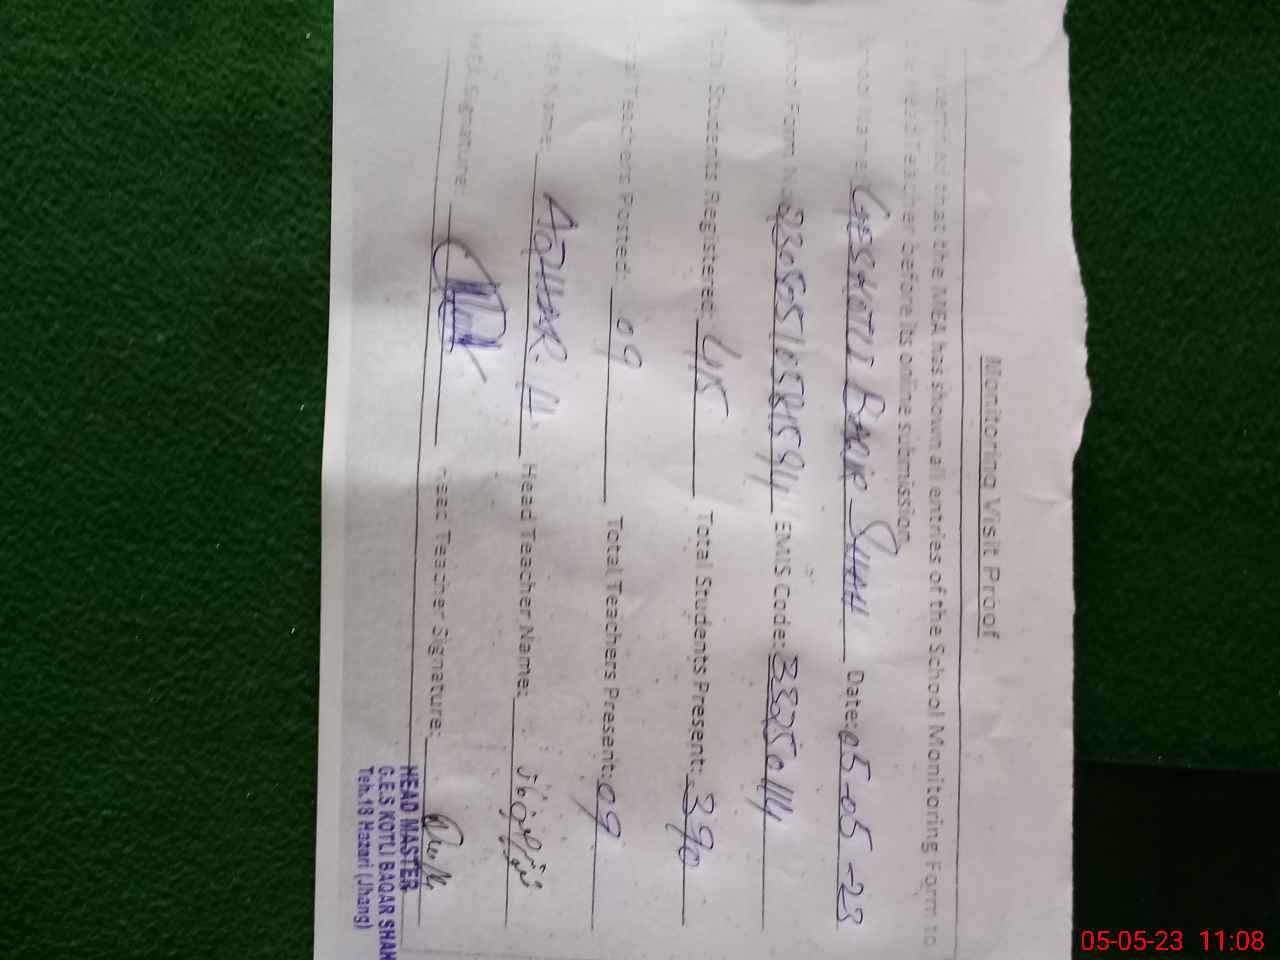 Monitoring Visit Proof
that the MEA has shown all entries of the School Monitoring Form to
Head Teacher before its online submission.
School Name: GES KOTLI BAQIR SHAH Date: 05-05-23
Form No. EMIS Code: 33250114
Students Registered: 415 Total Students Present: 390
Teachers Posted: 09 Total Teachers Present: 09
Name: AZHAR. M. Head Teacher Name:
MEA Signature: Head Teacher Signature:
HEAD MASTER
G.E.S KOTLI BAQAR SHAH
Teh.18 Hazari (Jhang)
05-05-23 11:08